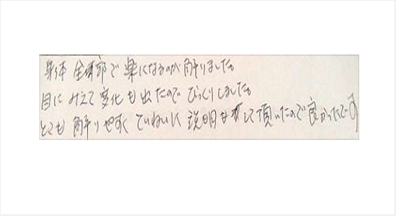 身体全部で楽になるのが解りました。
目にみえて変化も出たのでびっくりしました。
とても解りやすくていねいに説明もして頂いたので良かったです